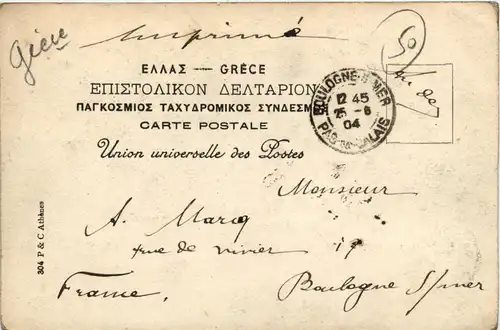 Grèce
Imprimé
50
ΕΛΛΑΣ — GRÈCE
ΕΠΙΣΤΟΛΙΚΟΝ ΔΕΛΤΑΡΙΟΝ
ΠΑΓΚΟΣΜΙΟΣ ΤΑΧΥΔΡΟΜΙΚΟΣ ΣΥΝΔΕΣΜ
CARTE POSTALE
Union universelle des Postes
BOULOGNE-S-MER
12 45
25 - 6
04
PAS-DE-CALAIS
Monsieur
A. Marcq
rue de vivier 19
Boulogne s/mer
France.
304 P & C Athènes